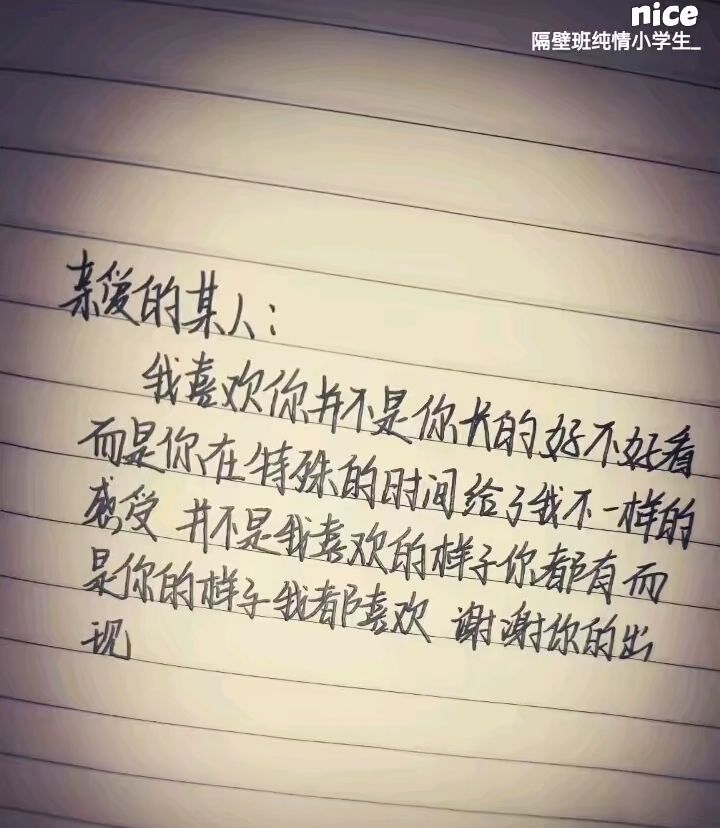 nice
隔壁班纯情小学生_
亲爱的某人：
我喜欢你并不是你长的好不好看
而是你在特殊的时间给了我不一样的
感受 并不是我喜欢的样子你都有而
是你的样子我都喜欢 谢谢你的出
现